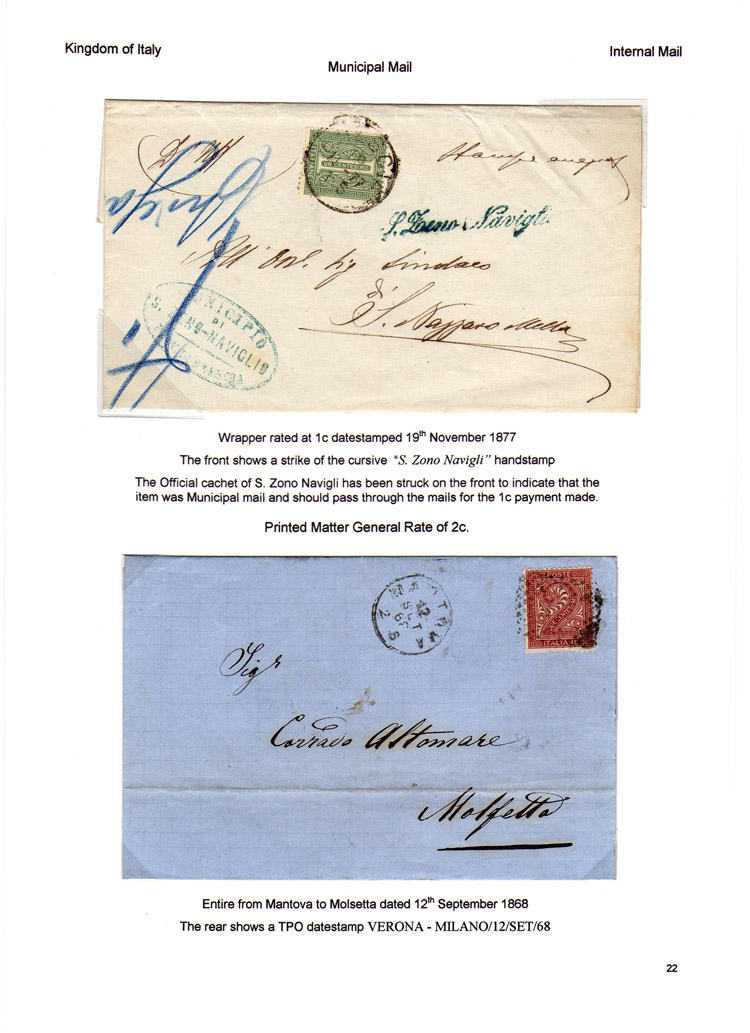 Kingdom of Italy
Internal Mail
Municipal Mail
UN CENTESIMO
S. Zeno Navigli
All' On. Sig Sindaco
di
S. Nazzaro Mella
MUNICIPIO
DI
S. ZENO-NAVIGLIO
Wrapper rated at 1c datestamped 19th November 1877
The front shows a strike of the cursive "S. Zono Navigli" handstamp
The Official cachet of S. Zono Navigli has been struck on the front to indicate that the
item was Municipal mail and should pass through the mails for the 1c payment made.
Printed Matter General Rate of 2c.
MANTOVA
12
SET
68
POSTE
ITALIA
Sigr
Corrado Altomare
Molfetta
Entire from Mantova to Molsetta dated 12th September 1868
The rear shows a TPO datestamp VERONA - MILANO/12/SET/68
22